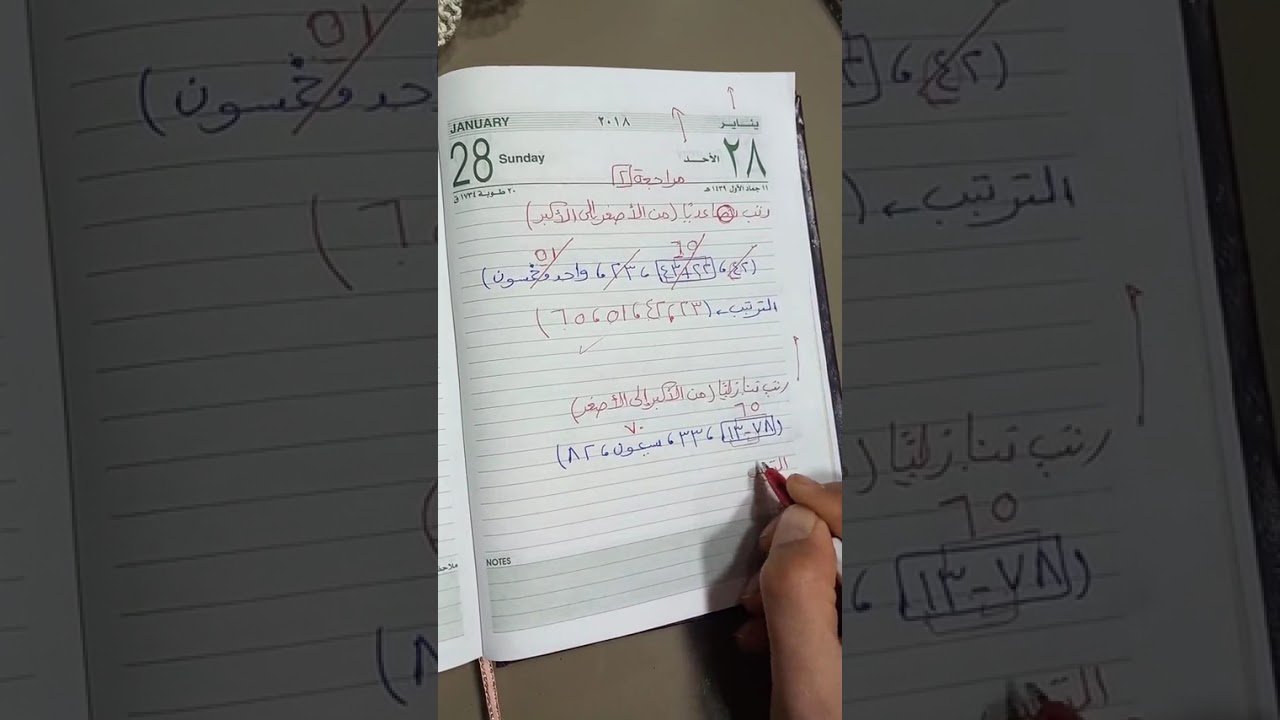 JANUARY ٢٠١٨ يناير
28 Sunday الأحد ٢٨
٢٠ طوبة ١٧٣٤ ق ١١ جماد الأول ١٤٣٩ هـ
مراجعة ٢
رتب تصاعديًا (من الأصغر إلى الأكبر)
٥١ ٦٥
(٤٢ ، ٤٢+٢٣ ، ٢٣ ، واحد وخمسون)
الترتيب ← (٢٣ ، ٤٢ ، ٥١ ، ٦٥)
رتب تنازليًا (من الأكبر إلى الأصغر)
٧٠ ٦٥
(٧٨-١٣ ، ٣٣ ، سبعون ، ٨٢)
NOTES